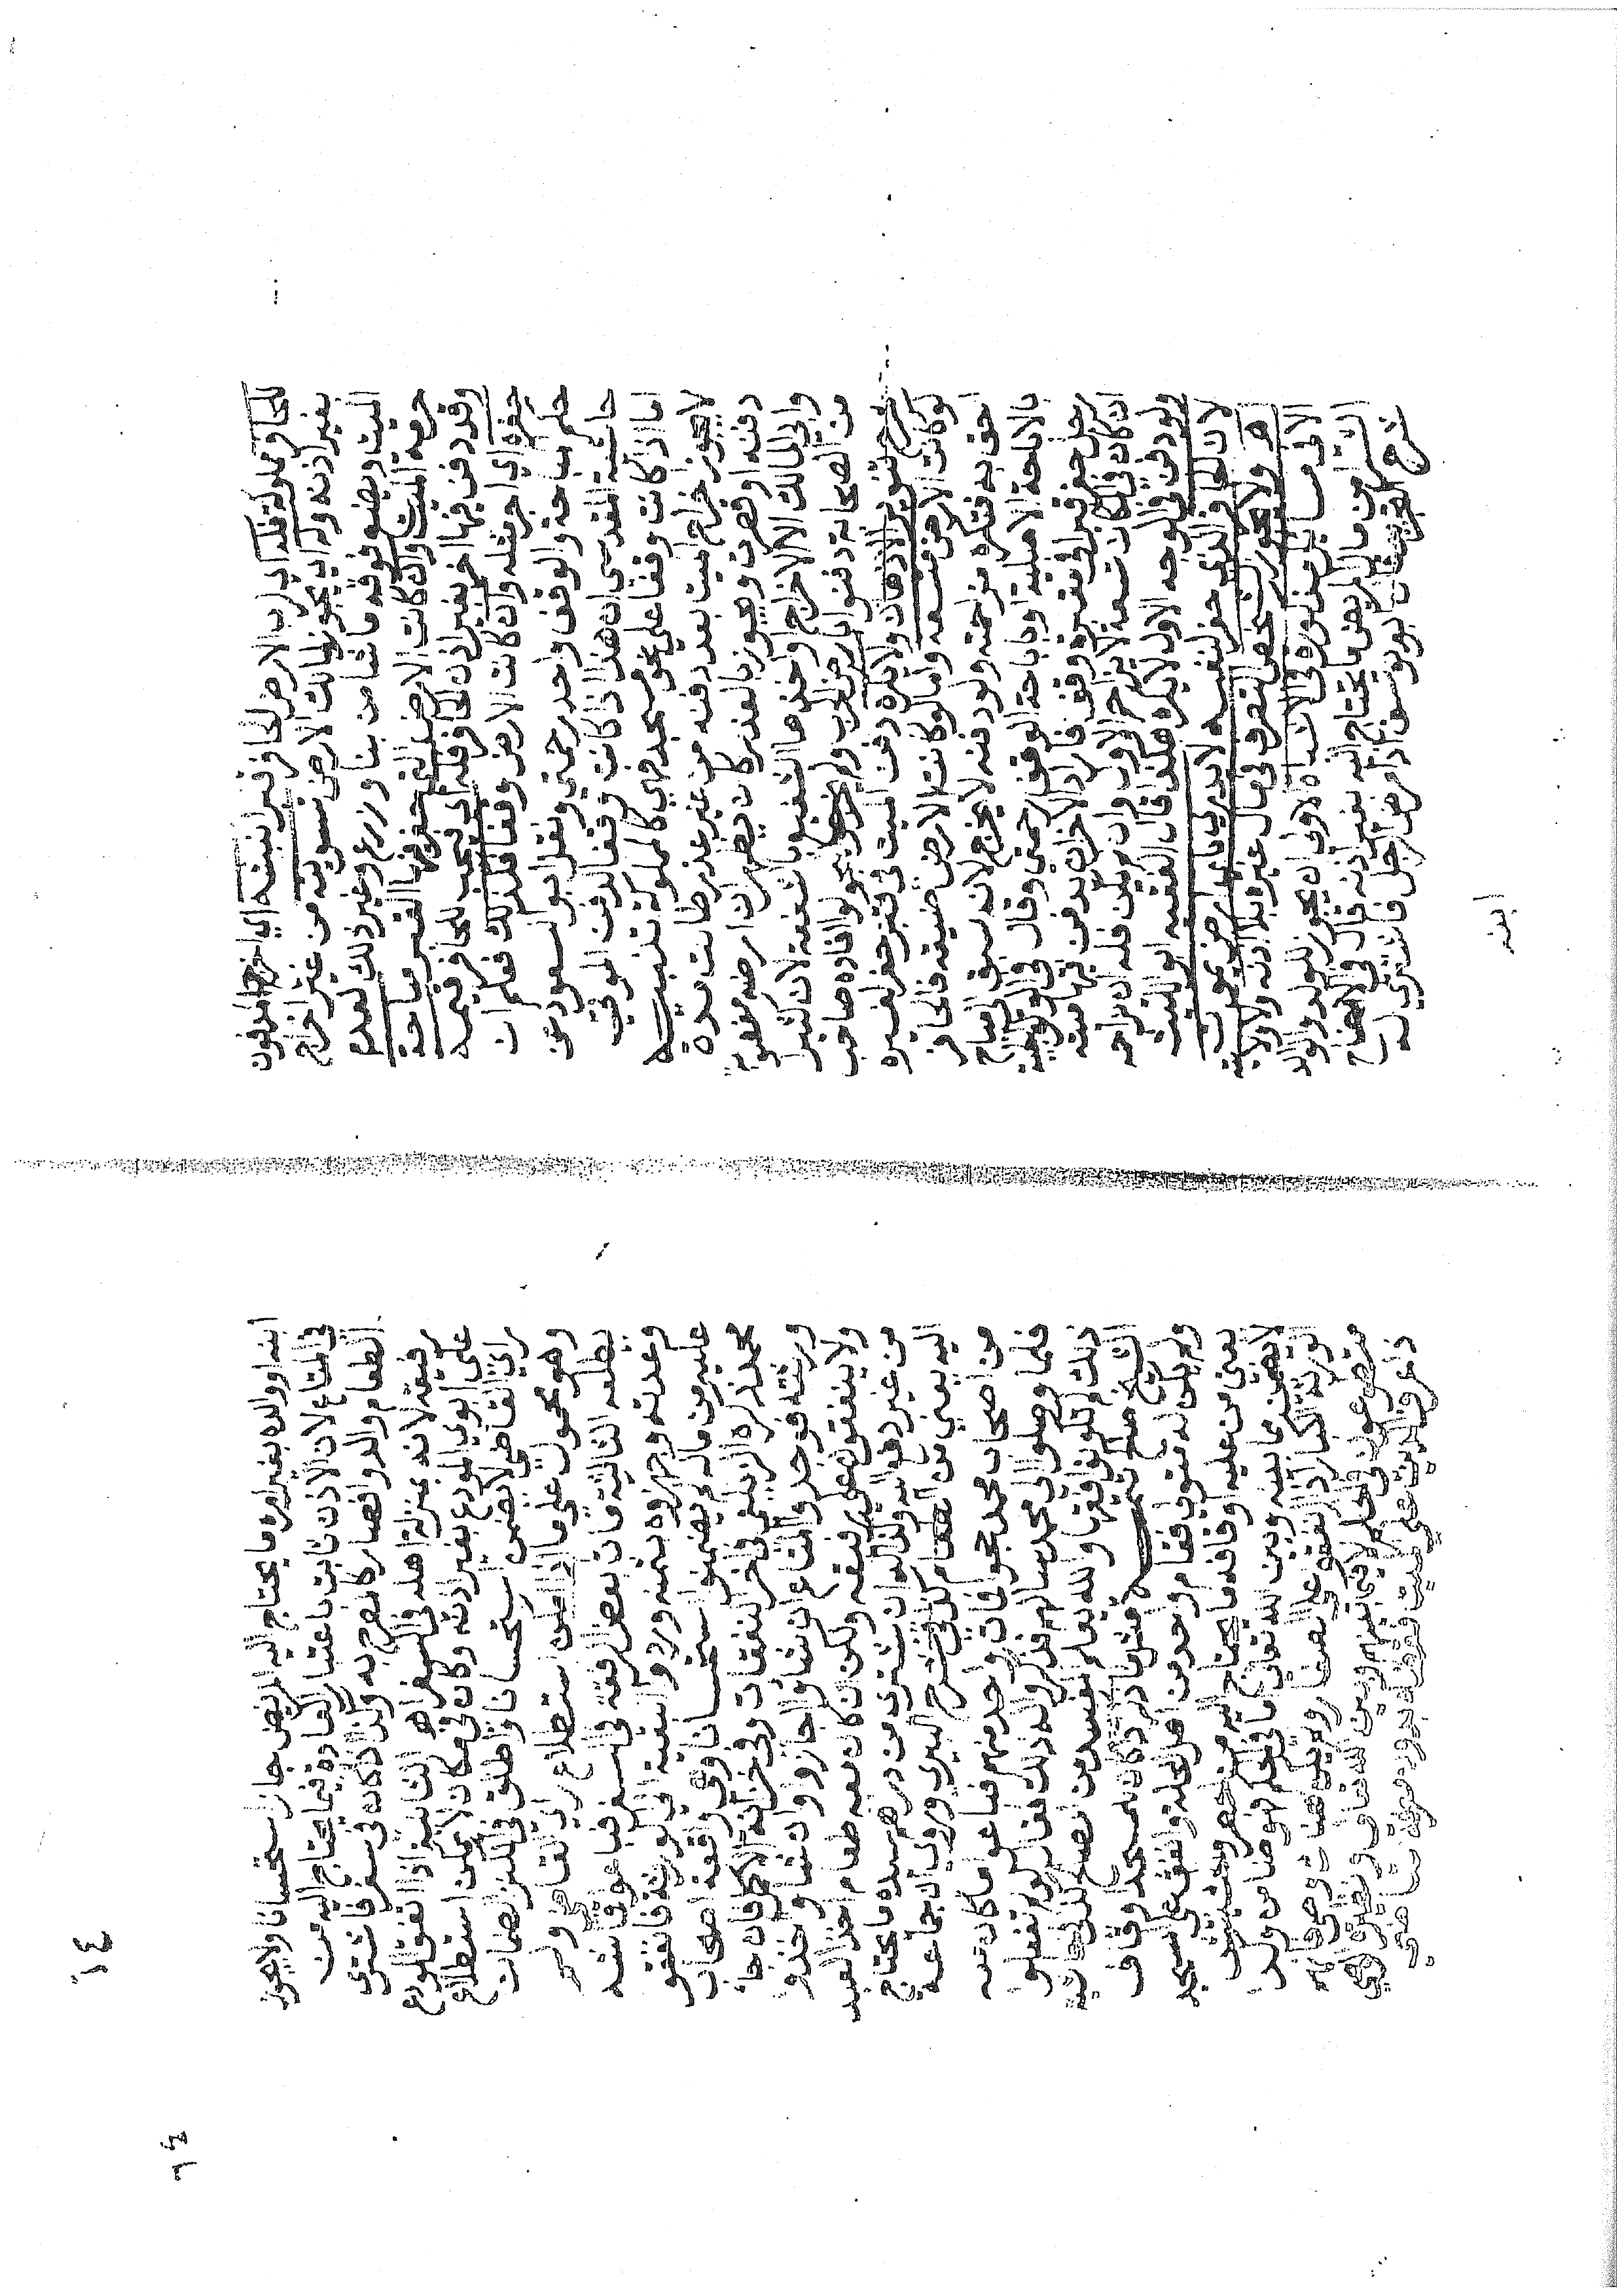 للحافر مملوكة فله اي لرب الارض للحافر قبرا نبشه اي اخرج المدفون
بغير اذنه وله اي يجوز لمالك الارض تسويته من غير اخراج
الميت ويصنع فوقه ما شاء من بنا وزرع وغير ذلك لعدم
حرمة الميت وان كانت الارض التي حفر فيها القبر مباحة
وقد دفن فيها اخر بغير اذن الحافر فله اي يجب للحافر قيمة
حفره اي اجر مثله وان كانت الارض وقفا فكذلك فعلم ان
حكم المباحة والوقف واحد رحمتي ونقل ابو السعود عن
حاشية المقدسي ان هذا اذا كانت وقفا لدفن الموتى
اما اذا كانت وقفا على نحو مسجد فهي كالمملوكة تنبيه
لا يجوز اخراج الميت بعد دفنه من غير عذر طالت مدة
دفنه او قصرت ويجوز بالعذر كان يظهر ان ارضه مغصوبة
وابى المالك الا الاخراج واخذها الشفيع بالشفعة لان كثيرا
من الصحابة دفنوا بارض الحرب ولم يحولوا افاده صاحب
شرح تنوير الاذهان ولا يكره دفن الميت في قبر حفر لغيره
لو كانت الارض متسعة واما لو كانت الارض ضيقة فالحافر
احق به فتكره مزاحمته ولو دفنه لا يخرج لانه سبق الى مباح
بالاباحة الاصلية او باباحة الوقف رحمتي وقال في الولوالجية
رجل حفر قبرا في مقبرة وقف فاراد الاخر ان يدفن فيها ميته
ان كان في المكان سعة لا يزاحم الاول وان لم يكن فله ان يزاحمه
ولو دفن في الوجه الاول لا يكره هكذا قال الفقيه ابو الليث
لان الحافر الذي حفر لنفسه لا يدري باي ارض يموت
اهـ ولا يجوز لشخص التصرف في مال غيره بلا اذنه ولا ولاية
الا في مسائل مذكورة في الاشباه الاولى ان يجوز للولد والوالد
الشرا من مال المريض ما يحتاج اليه بغير اذنه قال في الايضاح
شرح التجريد عن ابي يوسف اذا مرض الرجل فاشترى له
ابنه
ابنه او والده بغير امره ما يحتاج اليه المريض جاز استحسانا ولا يجوز
في المتاع لان الاذن ثابت باعتبار العادة فيما يحتاج اليه من
الطعام والدوا فصار كالمصرح به ولذا اذا كان في سفر فاشترى
رفيقه لانه بمنزلة اهله في السفر اهـ الثانية اذا انفق المودع
على ابوي المودع بغير اذنه وكان في مكان لا يمكن استطلاع
راي القاضي لا يضمن استحسانا واطلق في الكنز الضمان
وهو محمول على ما اذا امكن استطلاع راي القاضي ولم
يطلعه الثالثة مات بعض الرفقة في السفر فباعوا قماشه
وعدته وجهزوه بثمنه وردوا البقية الى الورثة فانفقوا
عليه من ماله لم يضمنوا استحسانا وهي واقعة اصحاب
محمد ذكره الزيلعي في اخر النفقات وفي خزانة الاكمل فان جا
ورثته فوجدوا المتاع ان شاؤا اجازوا وان شاؤا اخذوا
ولا ينفقون على رقيقه ولكن ان كان معه طعام اخذ العبد
من غير دفع اليه ولذا لو ان يشتري من درهم بيده ما يحتاج
اليه يعني من الطعام كذا في شرح البيري وروي ان جماعة
من اصحاب محمد حجوا فمات واحد منهم فباعوا ما كان معه
فلما وصلوا الى محمد سالهم فذكروا له ذلك فقال لو لم تفعلوا
ذلك لم تكونوا فقهاء والله يعلم المفسد من المصلح كذا في الخانية
الشيخ صالح تتمة لا فيش ما لم ذكان لمسجد اوقاف
ولم يكن له متولي فقام واحد من اهل المحلة وانفق على المسجد
يعني من غلة اوقافه ما يحتاج اليه من الحصر والحشيش
لا يضمن فيما بينه وبين الله تعالى اما في الحكم فهو ضامن ولذا
الورثة الكبار اذا انفقوا على الصغار ولم يكن هناك وصي فانه
متطوعون في الحكم لا فيما بينهم وبين الله تعالى ونظيره الوصي
اذا عرف الدين على الميت فقضاه بدون معرفة القاضي
١٤